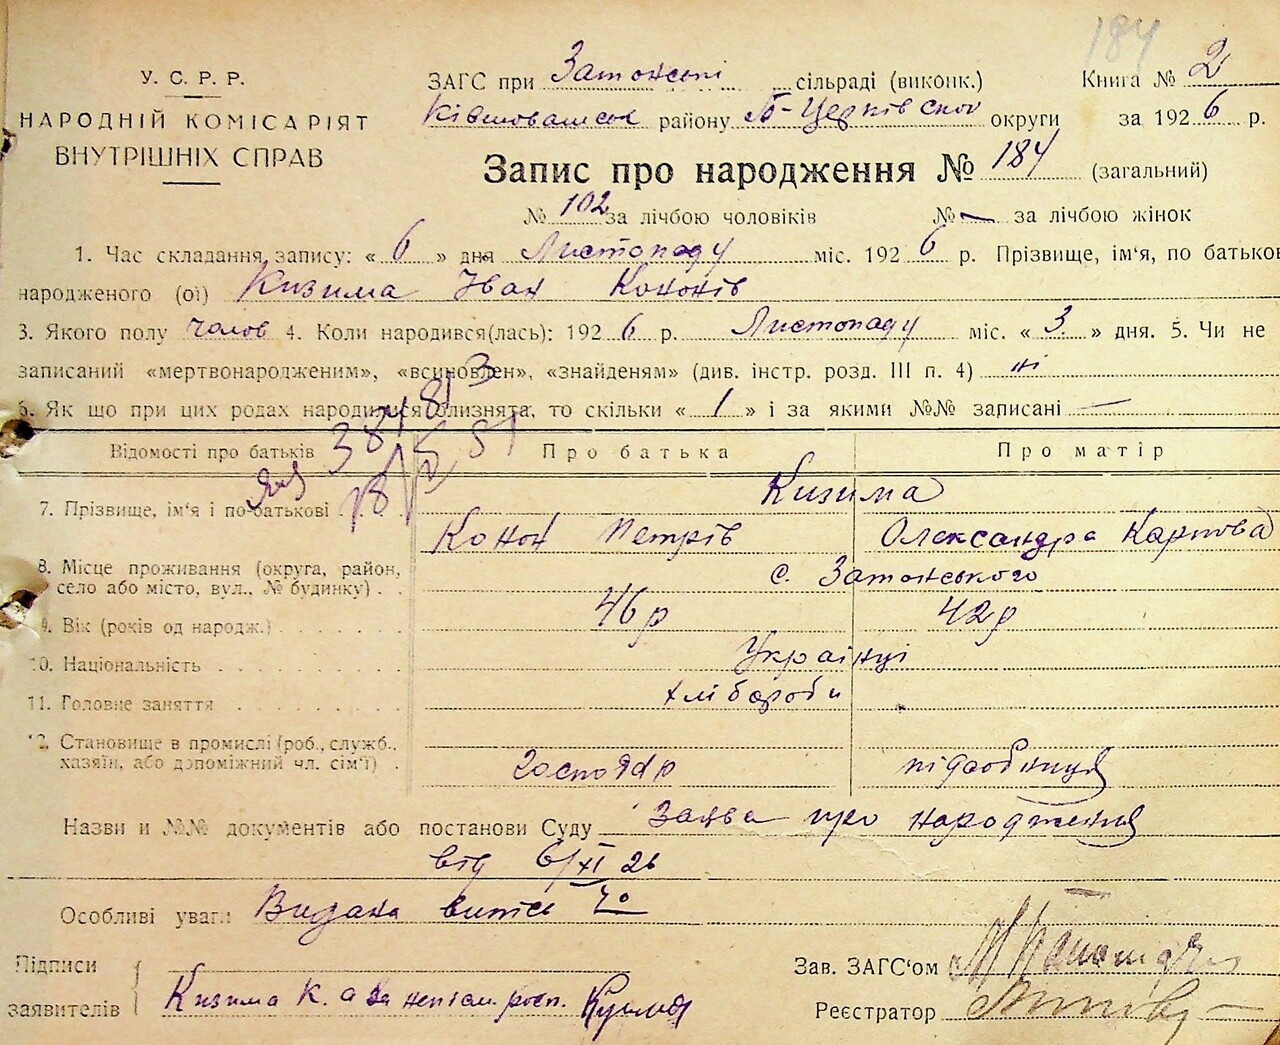 184
У. С. Р. Р.
НАРОДНІЙ КОМІСАРІЯТ
ВНУТРІШНІХ СПРАВ
ЗАГС при Затонскі сільраді (виконк.)
Книга № 2
району Б-Церківскої округи за 1926 р.
Запис про народження № 184 (загальний)
№ 102 за лічбою чоловіків № — за лічбою жінок
1. Час складання запису: « 6 » дня Листопаду міс. 1926 р. Прізвище, ім'я, по батькові
народженого (ої) Кизима Іван Кононів
3. Якого полу чолов 4. Коли народився(лась): 1926 р. Листопаду міс. « 3 » дня. 5. Чи не
записаний «мертвонародженим», «всиновлен», «знайденям» (див. інстр. розд. III п. 4) ні
6. Як що при цих родах народилися близнята, то скільки « 1 » і за якими №№ записані —
Відомості про батьків Про батька Про матір
7. Прізвище, ім'я і по батькові Кизима
Конон Петрів Олександра Карпова
8. Місце проживання (округа, район,
село або місто, вул., № будинку) . . с. Затонського
9. Вік (років од народж.) 46 р 42 р
10. Національність Українці
11. Головне заняття хлібороби
12. Становище в промислі (роб., служб.,
хазяїн, або допоміжний чл. сім'ї) . господар
Назви и №№ документів або постанови Суду Заява про народження
від 6/XI 26
Особливі уваг.: Видана
Підписи
заявителів Кизима К. а за неписм. росп.
Зав. ЗАГС'ом
Реєстратор